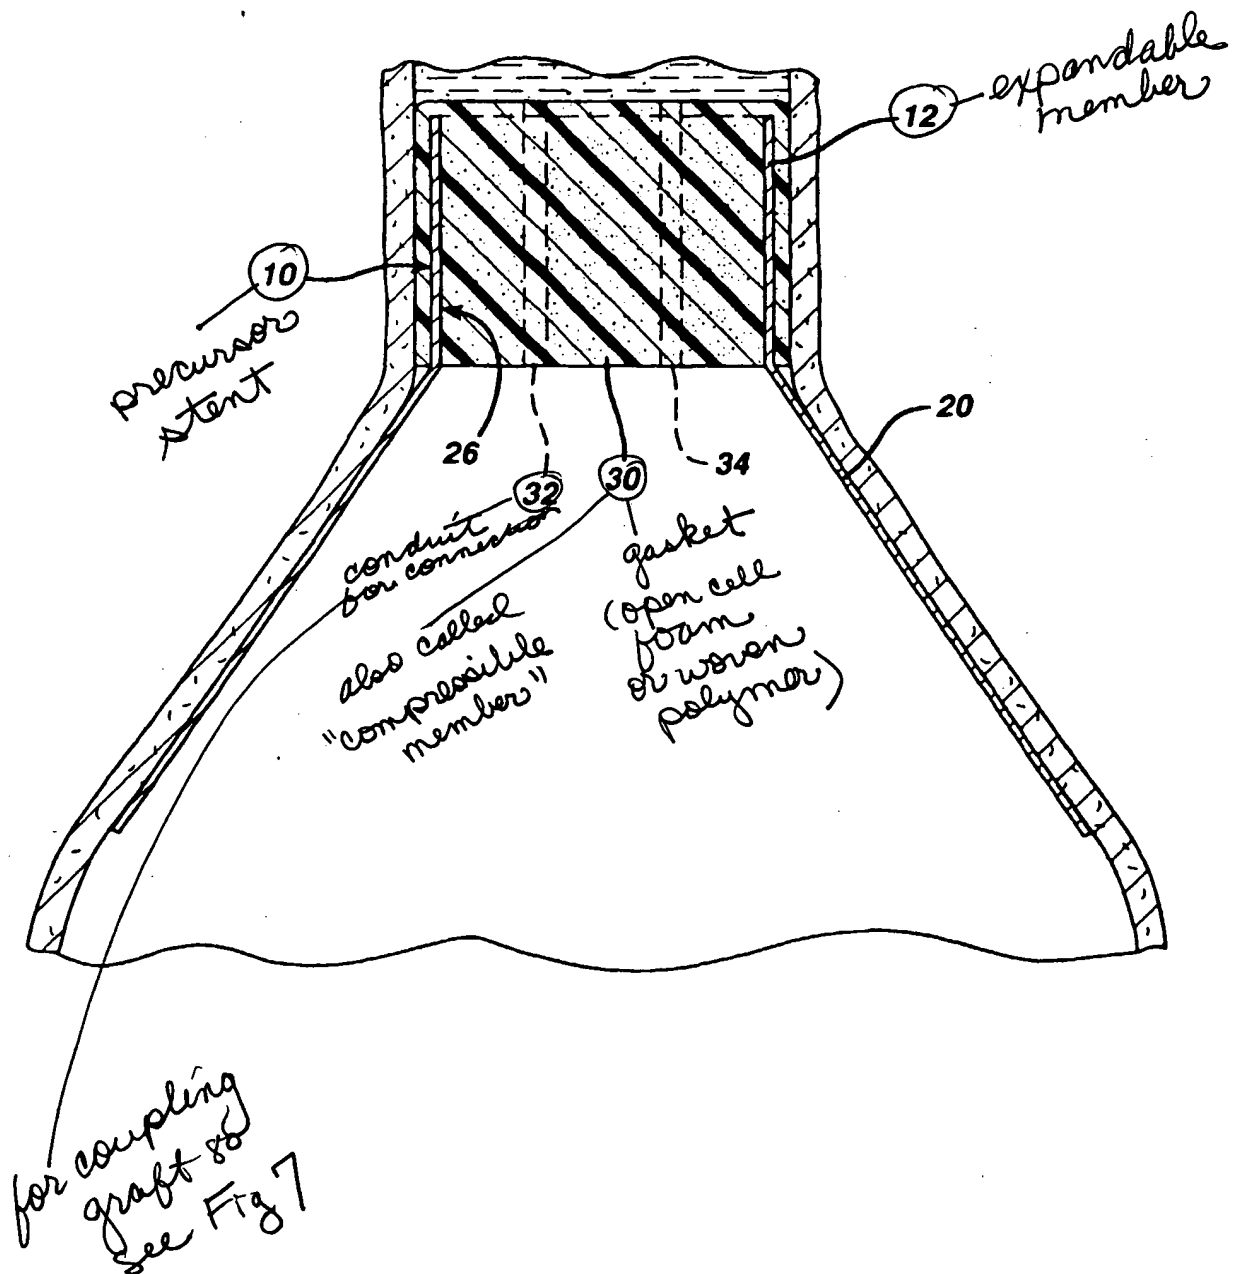 12 expandable
member
10
precursor
stent
26
32
30
34
20
conduit
for connection
also called
"compressible
member"
gasket
(open cell
foam
or woven
polymer)
for coupling
graft 80
see Fig 7